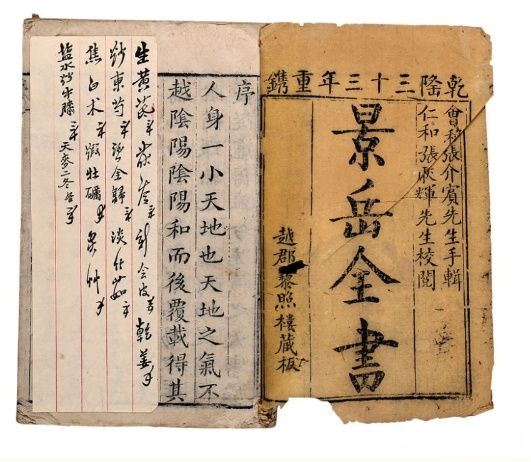 乾隆三十三年重鐫
會稽張介賓先生手輯
仁和張輝先生校閱
景岳全書
越郡黎照樓藏板
序
人身一小天地也天地之氣不
越陰陽陰陽和而後覆載得其
生黃芪 新会皮 乾姜
炒東芍 全歸 淡竹茹
焦白术 煅牡礪 炙艸
盐水炒牛膝 天麥二冬各